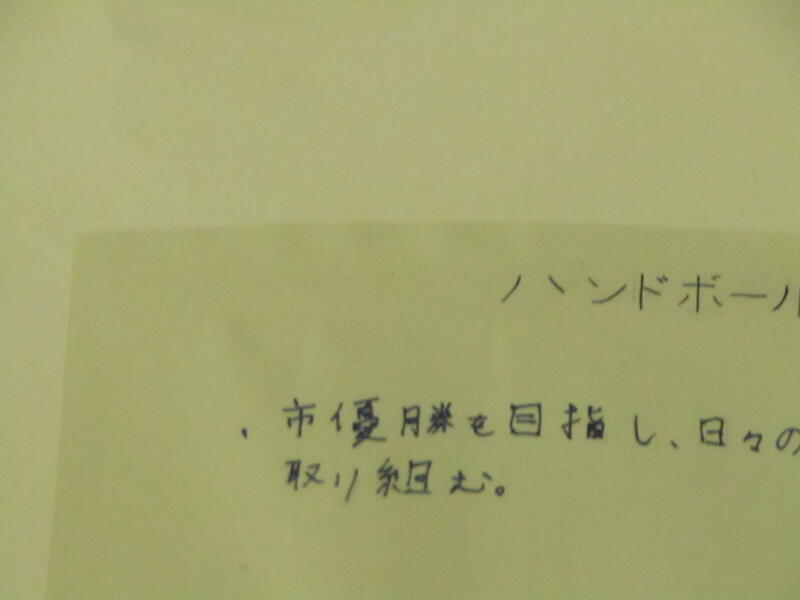 ハンドボール
・市優勝を目指し、日々の
取り組む。